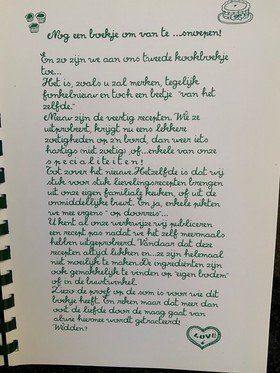 Nog een boekje om van te ...snoepen!
En zo zijn we aan ons tweede kookboekje
toe...
Het is, zoals u zal merken, tegelijk
fonkelnieuw en toch een beetje "van het
zelfde."
Nieuw zijn de vertig recepten. Wie ze
uitprobert, krijgt nu eens lekkere
zoetigheden op z'n bord, dan weer iets
hartigs (niet zoetig) of...enkele van onze
specialiteiten!
Tot zover het nieuwe.Hetzelfde is dat wij
stuk voor stuk lievelingsrecepten brengen
uit onze eigen familiale keuken, of uit de
onmiddellijke buurt. En ja, enkele pikten
we mee ergens "op doorreis"...
U kent al onze werkwijze:wij publiceren
een recept pas nadat we het zelf meermaals
hebben uitgeprobeerd. Vandaar dat deze
recepten altijd lukken en...ze zijn helemaal
niet moeilijk te maken.De ingrediënten zijn
ook gemakkelijk te vinden op "eigen bodem"
of in de buurtwinkel.
Ziezo de proef op de som is voor wie dit
boekje heeft. En reken maar dat meer dan
ooit de liefde door de maag gaat van
al wie hiermee wordt getracteerd!
Wedden?
LOVE